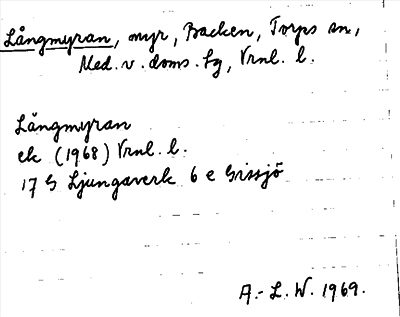 Långmyran, myr, Backen, Torps sn,
Med. v. doms. fg, Vrnl. l.
Långmyran
ek (1968) Vrnl. l.
17 G Ljungaverk 6 e Gissjö
A.-L.W. 1969.